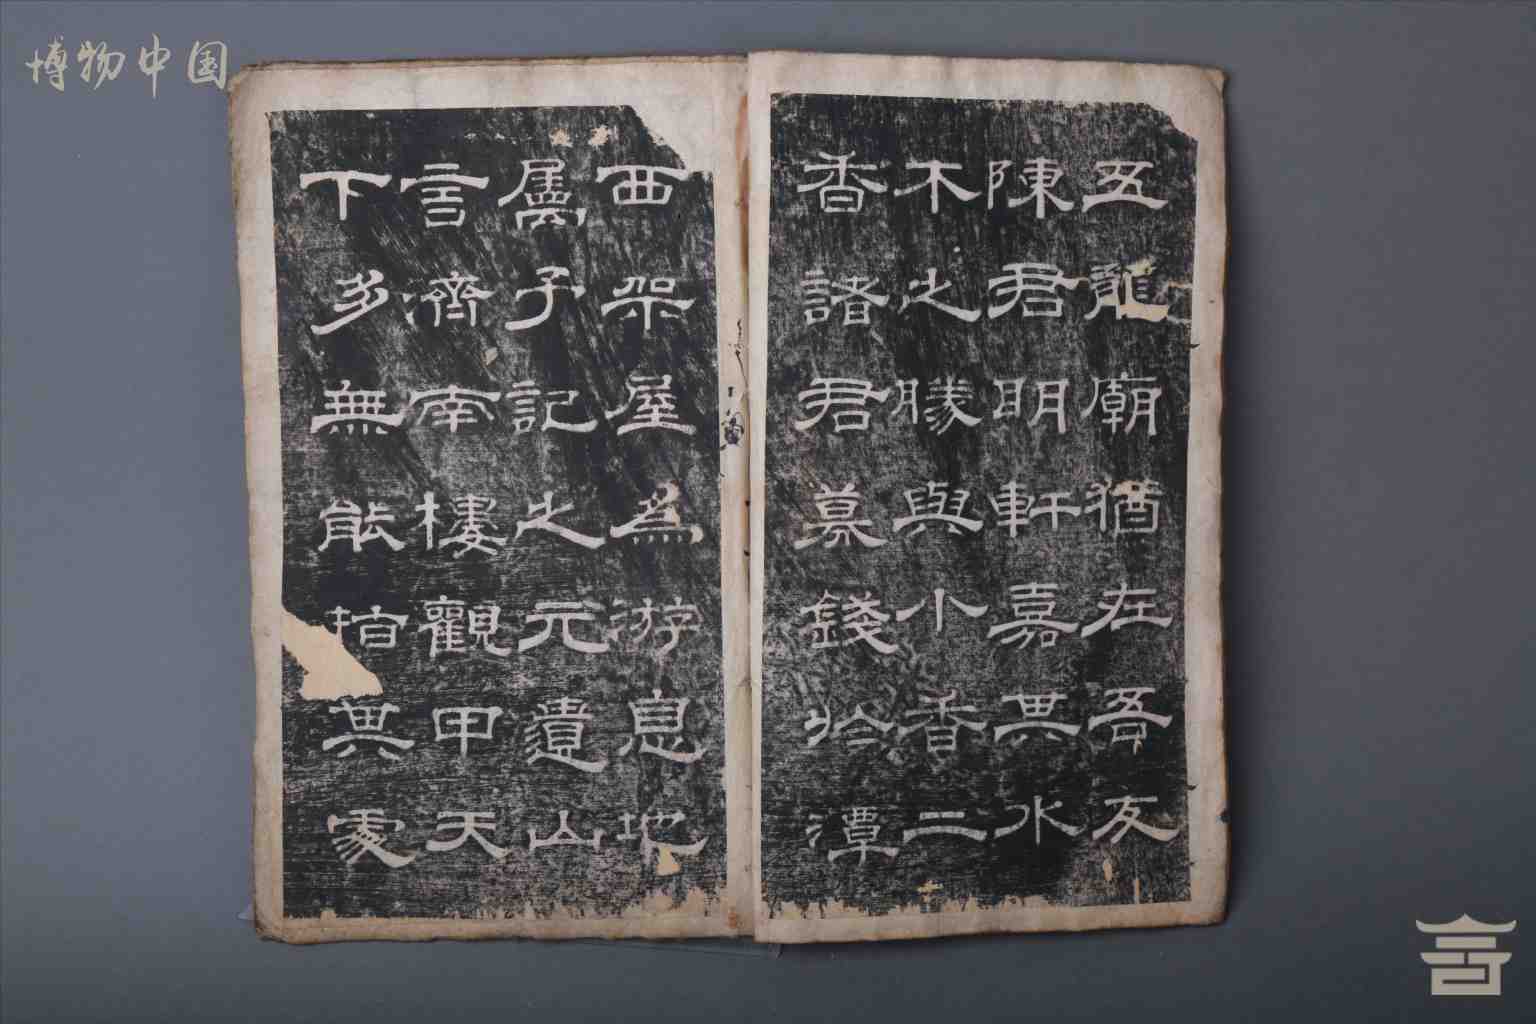 博物中国
五龍廟猶在吾友
陳君明軒嘉其水
木之勝與小香二
香諸君募錢於潭
西架屋為游息地
属予記之元遺山
言濟南樓觀甲天
下多無能指其處